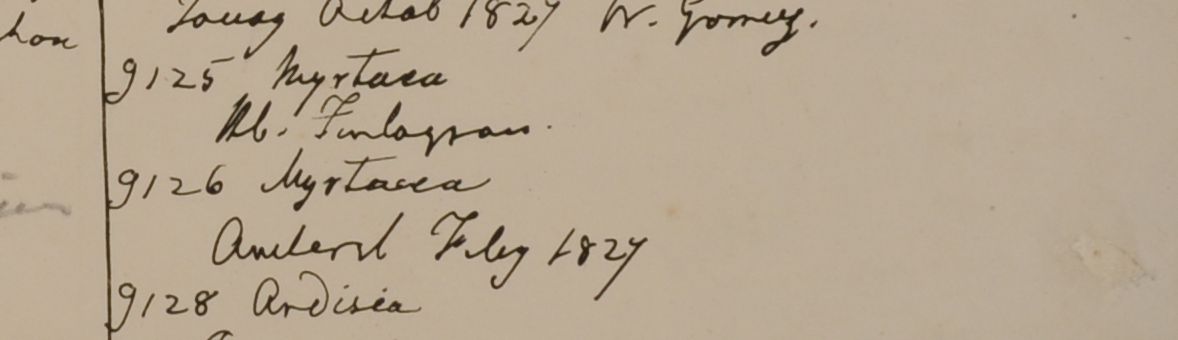 Tavoy Octob 1827 W. Gomez.
9125 Myrtacea
Hb. Finlayson.
9126 Myrtacea
Amherst Feby 1827
9128 Ardisia